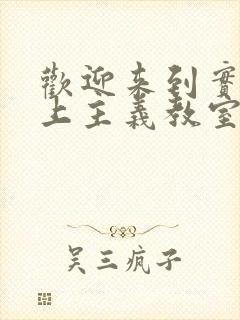 歡迎來到實
上主義教室
吴三疯子